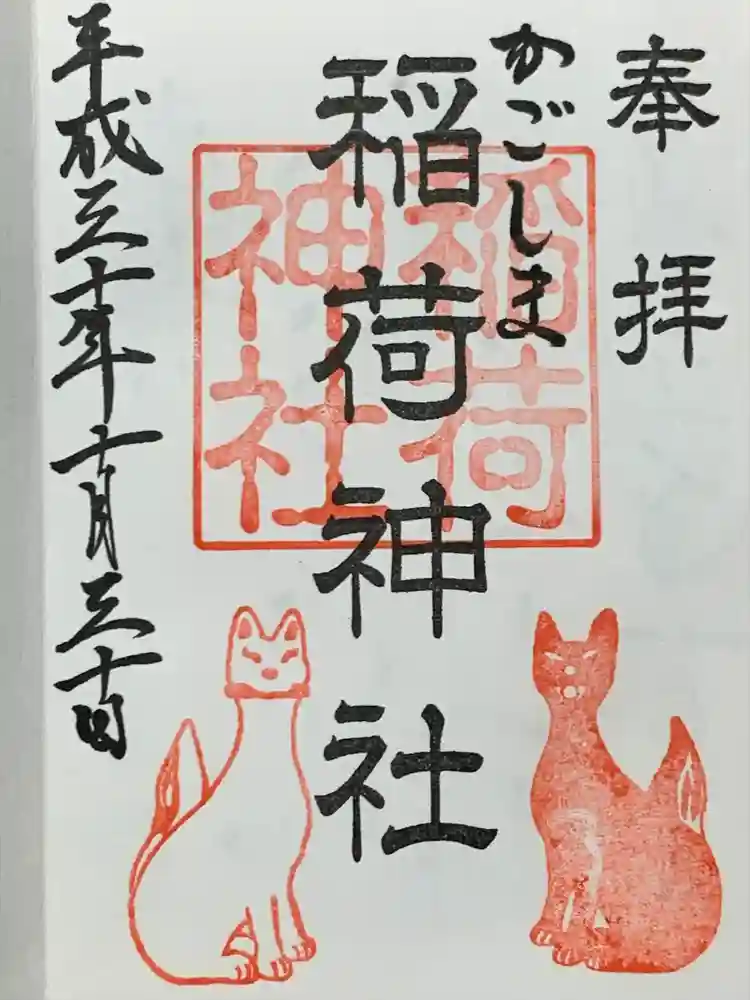 奉拝
かごしま
稲荷神社
稲荷
神社
平成三十年十一月三十日